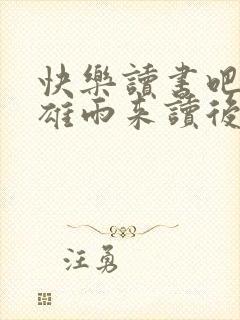 快樂讀書吧
雄雨来讀後
汪勇